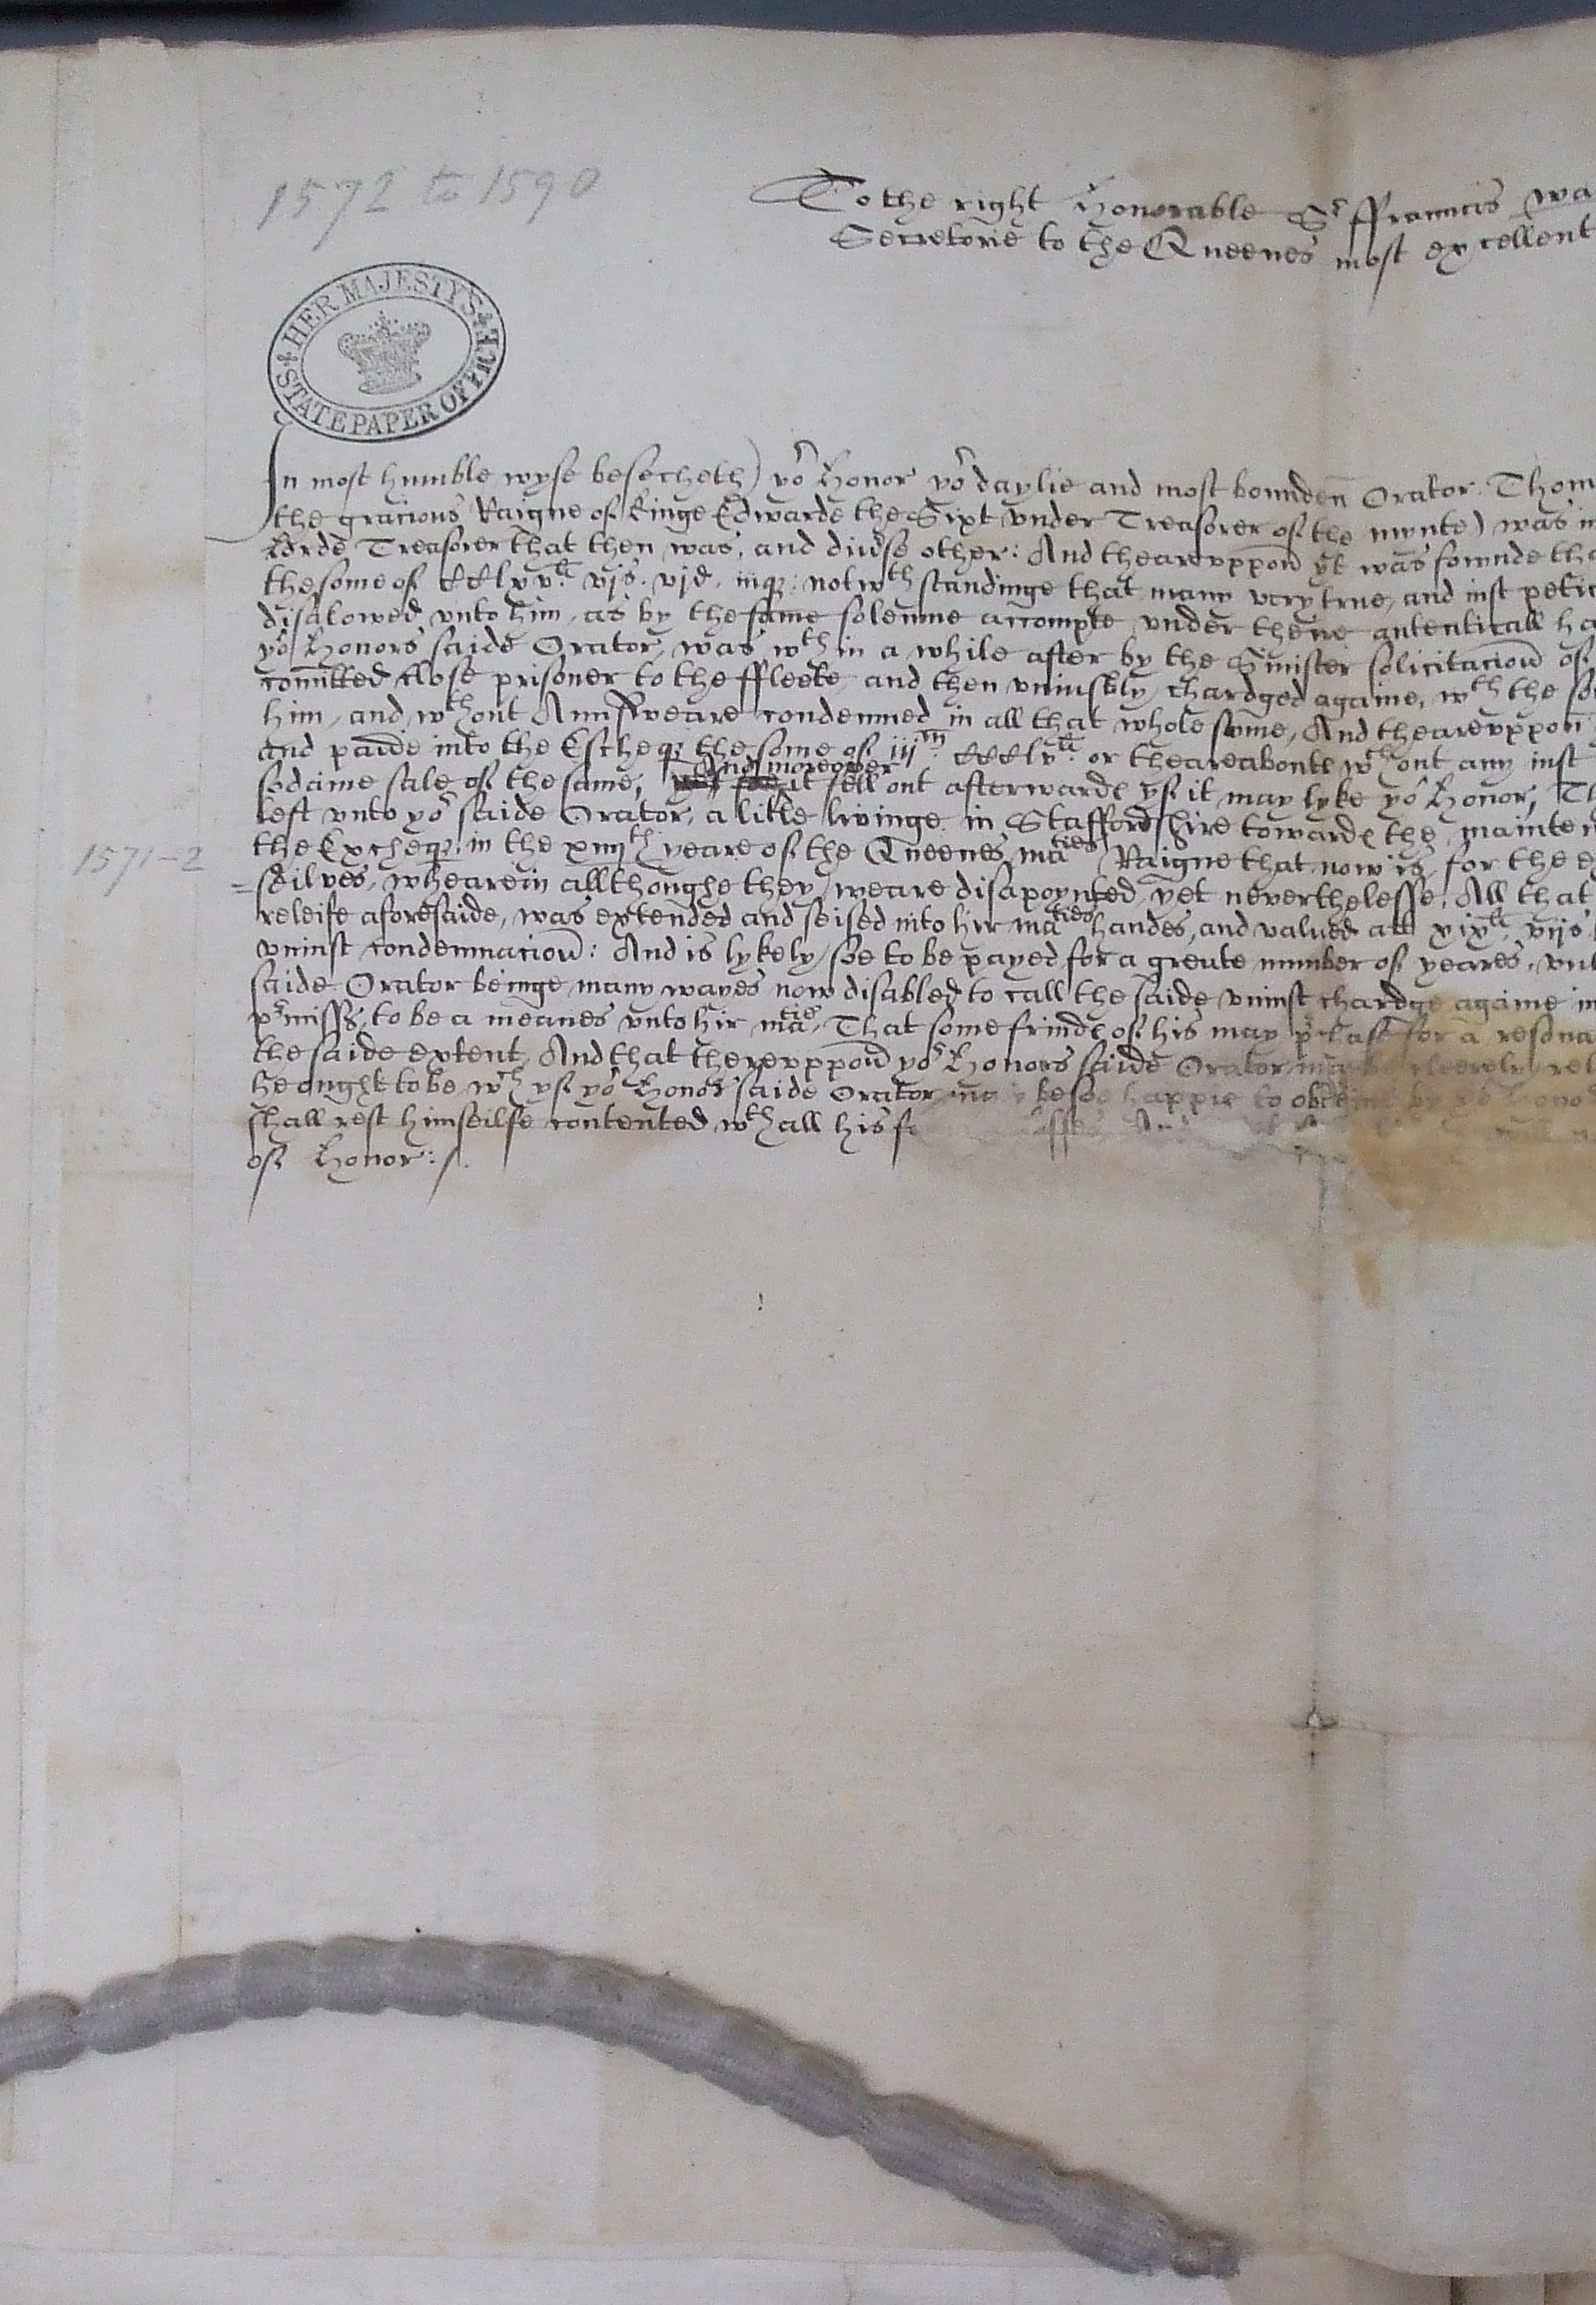 1572 to 1590
To the right Honorable Sr ffrauncis wa
Secretorie to the Queenes most excellent
HER MAJESTY'S STATE PAPER OFFICE
In most humble wyse besecheth yor Honor yor daylie and most bounden Orator Thom
the gracious Raigne of Kinge Edwarde the Sixt vnder Treasorer of the mynte) was in
Lorde Treasorer that then was, and diuse other: And theareuppon yt was fownde tha
the some of vjs. vjd. iiiq: notwth standinge that many very true, and iust petic
disalowed vnto him, as by the same solemne accompte vnder theire autenticall ha
yor Honors saide Orator, was wth in a while after by the Sinister solicitacion of
comitted close prisoner to the ffleete, and then vniustly chardged againe, wth the so
him, and wthout Aunsweare condemned in all that whole some, And theareuppon
and paide into the Escheqr the some of iijm or theareaboute wthout any iust
sodaine sale of the same, And moreover it fell out afterwarde yf it may lyke yor Honor, Th
left vnto yor saide Orator, a litle livinge in Staffordshire towarde the mainten
1571-2
the Excheqr in the xiiijth yeare of the Queenes maties Raigne that now is, for the
seilves, whearein allthoughe they weare disapoynted, yet neverthelesse, All that
releife aforesaide, was extended and seised into hir maties handes, and valued att xixli vijs
vniust condemnacion: And is lykely soe to be payed for a greate number of yeares, vnt
saide Orator beinge many wayes now disabled to call the saide vniust chardge againe in
prmisses, to be a meanes vnto hir matie, That some frinde of his may for a resona
the saide extent, And that thereuppon yor Honors saide Orator may be cleerely rel
he ought to be wch yf yor Honors saide Orator may be soe happie to obteine by yor Honors
shall rest himseilfe contented wth all his
of Honor: